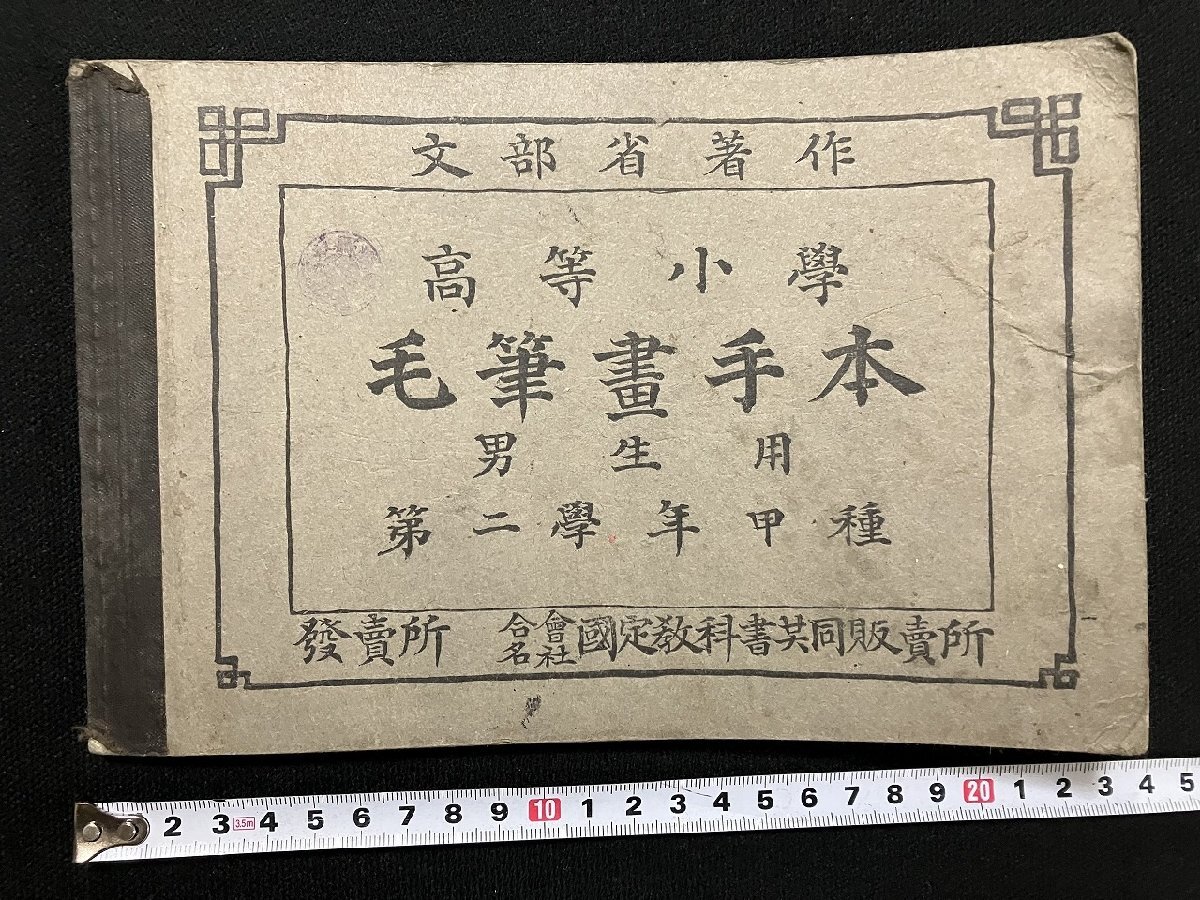 文部省著作
高等小學
毛筆畫手本
男生用
第二學年甲種
發賣所 合名會社國定教科書共同販賣所
2 3 3.5m 4 5 6 7 8 9 10 1 2 3 4 5 6 7 8 9 20 1 2 3 4 5